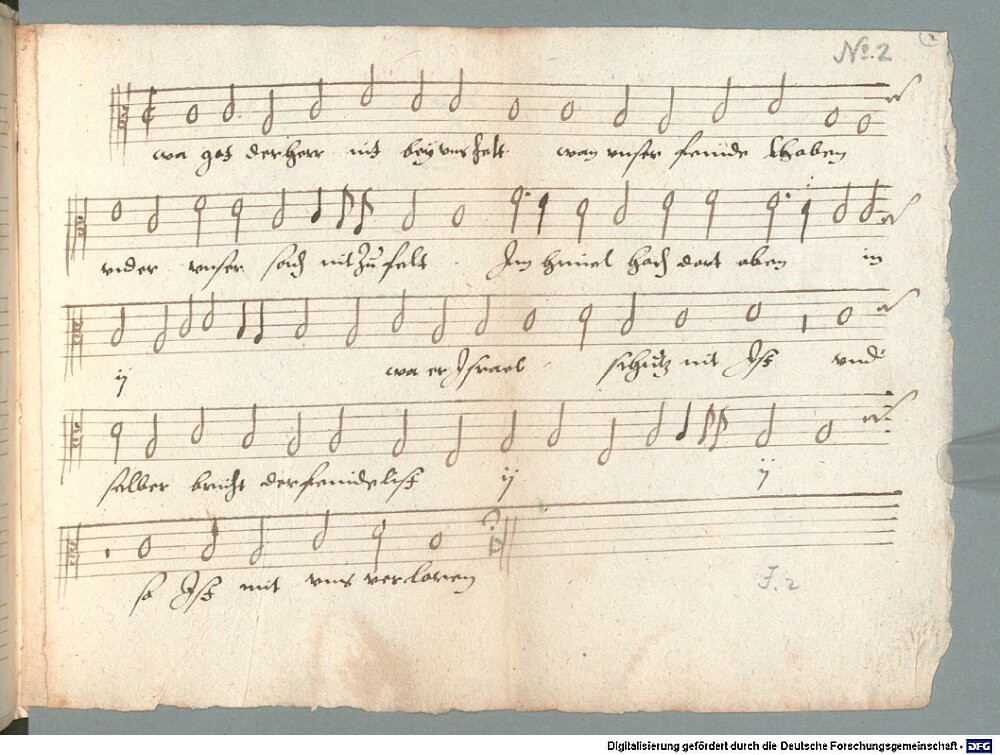 No. 2
wa got der herr nit bey uns helt wan unser feinde thoben
und er unser sach nit zu felt Im himel hoch dort oben in
ij wa er Israel schutz nit Ist und
selber bricht der feinde list ij ij
so Ist mit uns verloren
J. 2
Digitalisierung gefördert durch die Deutsche Forschungsgemeinschaft - DFG